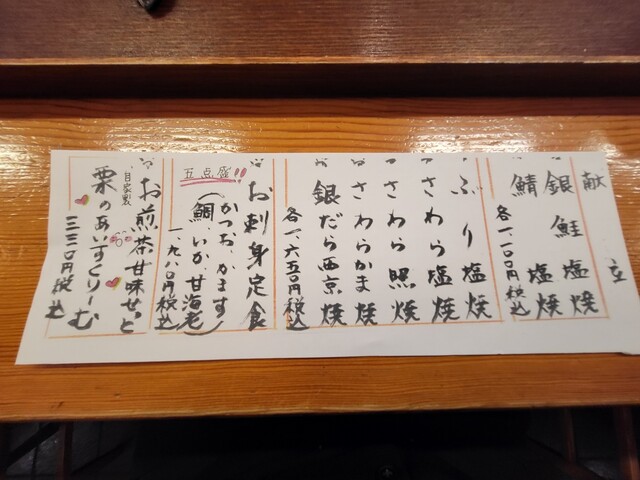 献立
銀鮭塩焼
鯖塩焼
各一、一〇〇円税込
ぶり塩焼
さわら塩焼
さわら照焼
さわらかま焼
銀だら西京焼
各一、六五〇円税込
お刺身定食
五点盛!!
(かつお、かます
鯛、いか、甘海老)
一、九八〇円税込
お煎茶甘味せっと
自家製
栗のあいすくりーむ
三三〇円税込